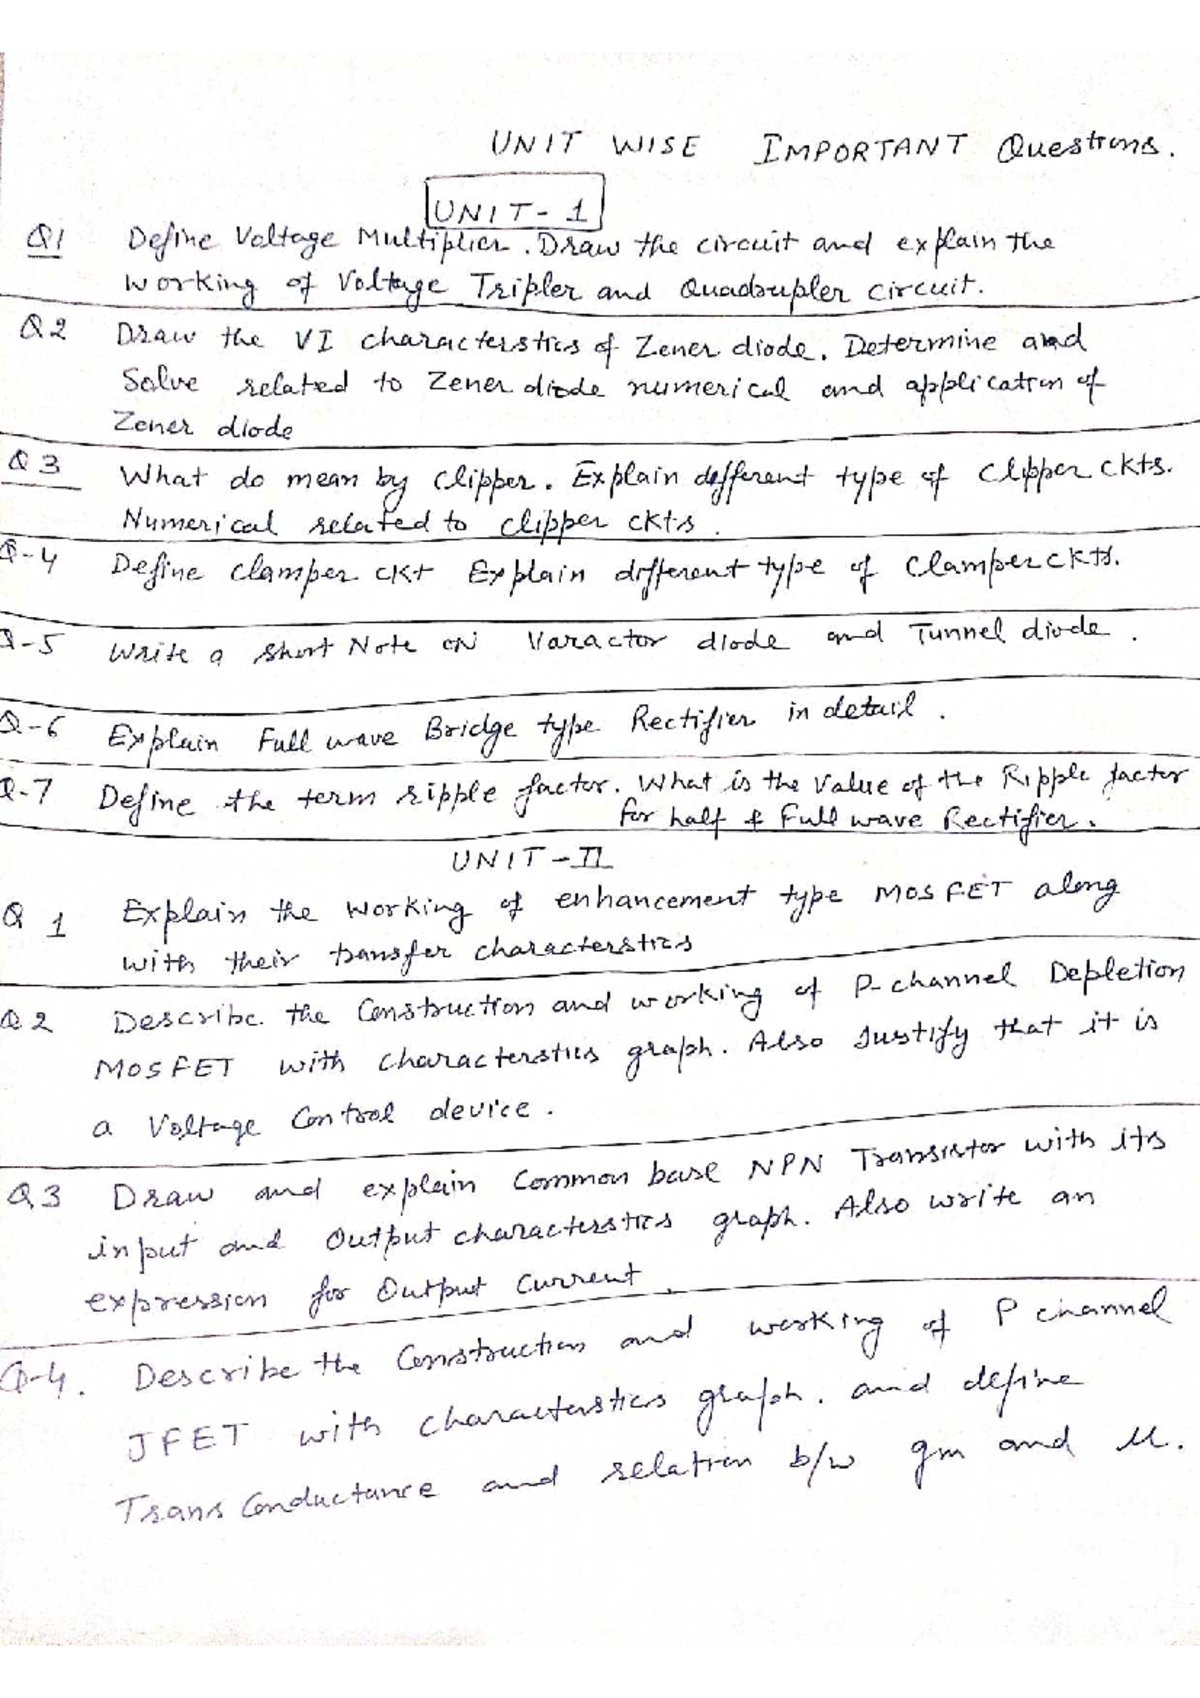 UNIT WISE IMPORTANT Questions.
UNIT-1
Q1 Define Voltage Multiplier. Draw the circuit and explain the
working of Voltage Tripler and Quadrupler circuit.
Q2 Draw the VI characterstics of Zener diode. Determine and
Solve related to Zener diode numerical and application of
Zener diode
Q3 What do mean by clipper. Explain different type of Clipper ckts.
Numerical related to clipper ckts.
Q-4 Define clamper ckt Explain different type of Clamper ckts.
Q-5 Write a short Note on Varactor diode and Tunnel diode.
Q-6 Explain Full wave Bridge type Rectifier in detail.
Q-7 Define the term ripple factor. What is the Value of the Ripple factor
for half & Full wave Rectifier.
UNIT-II
Q1 Explain the working of enhancement type MOSFET along
with their transfer characterstics
Q2 Describe the Construction and working of P-channel Depletion
MOSFET with characterstics graph. Also Justify that it is
a Voltage Control device.
Q.3 Draw and explain Common base NPN Transistor with its
input and Output characterstics graph. Also write an
expression for Output Current.
Q-4. Describe the Construction and working of P channel
JFET with characterstics graph. and define
TransConductance and relation b/w gm and µ.